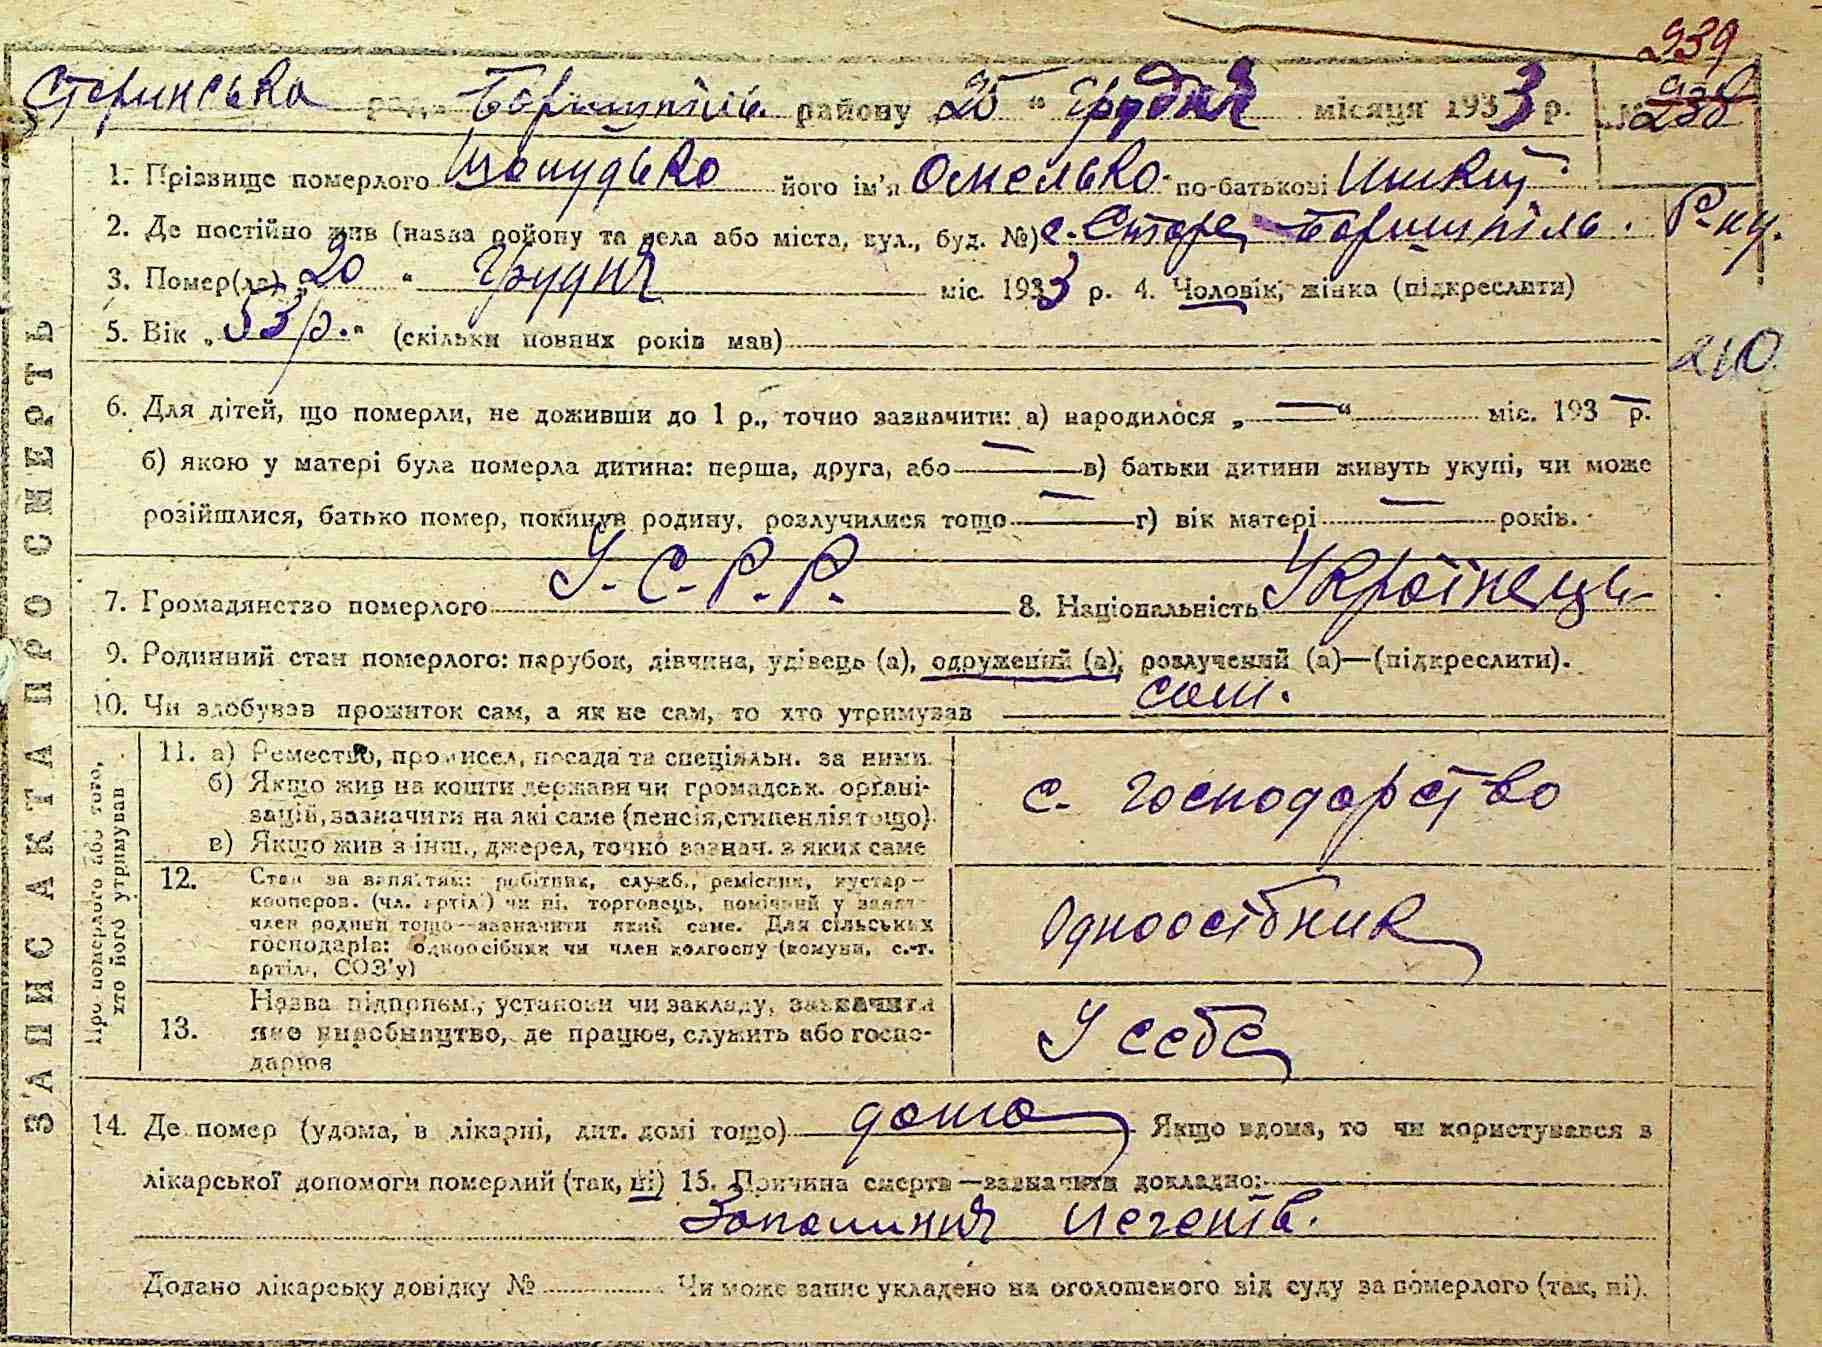 939
Старинська рада Бориспіль району 25 " Грудня місяця 1933 р. № 238
1. Прізвище померлого його ім'я Омелько по-батькові
2. Де постійно жив (назва району та села або міста, вул., буд. №) с. Старе Бориспіль.
3. Помер(ла) „20 " Грудня міс. 1933 р. 4. Чоловік, жінка (підкреслити)
5. Вік „53 р." (скільки повних років мав)
210
6. Для дітей, що померли, не доживши до 1 р., точно зазначити: а) народилося „—" міс. 193— р.
б) якою у матері була померла дитина: перша, друга, або — в) батьки дитини живуть укупі, чи може
розійшлися, батько помер, покинув родину, розлучилися тощо — г) вік матері — років.
7. Громадянство померлого У.С.Р.Р. 8. Національність Українець
9. Родинний стан померлого: парубок, дівчина, удівець (а), одружений (а), розлучений (а)—(підкреслити).
10. Чи здобував прожиток сам, а як не сам, то хто утримував сам.
ЗАПИС АКТА ПРО СМЕРТЬ
Про померлого або того,
хто його утримував
11. а) Ремество, промисел, посада та спеціяльн. за ними.
б) Якщо жив на кошти держави чи громадськ. органі-
зацій, зазначити на які саме (пенсія, стипендія тощо).
в) Якщо жив з інш., джерел, точно зазнач. з яких саме
с. господарство
12. Стан за заняттям: робітник, служб., ремісник, кустар—
кооперов. (чл. артіл.) чи ні, торговець, помічний у занят—
член родини тощо—зазначити який саме. Для сільських
господарів: одноосібник чи член колгоспу (комуни, с.-г.
артілі, СОЗ'у)
Одноосібник
13. Назва підприєм., установи чи закладу, зазначити
яке виробництво, де працює, служить або госпо-
дарює
У себе
14. Де помер (удома, в лікарні, дит. домі тощо) дома Якщо вдома, то чи користувався з
лікарської допомоги померлий (так, ні) 15. Причина смерти—зазначити докладно:
Запалиння легенів.
Додано лікарську довідку № Чи може запис укладено на оголошеного від суду за померлого (так, ні).